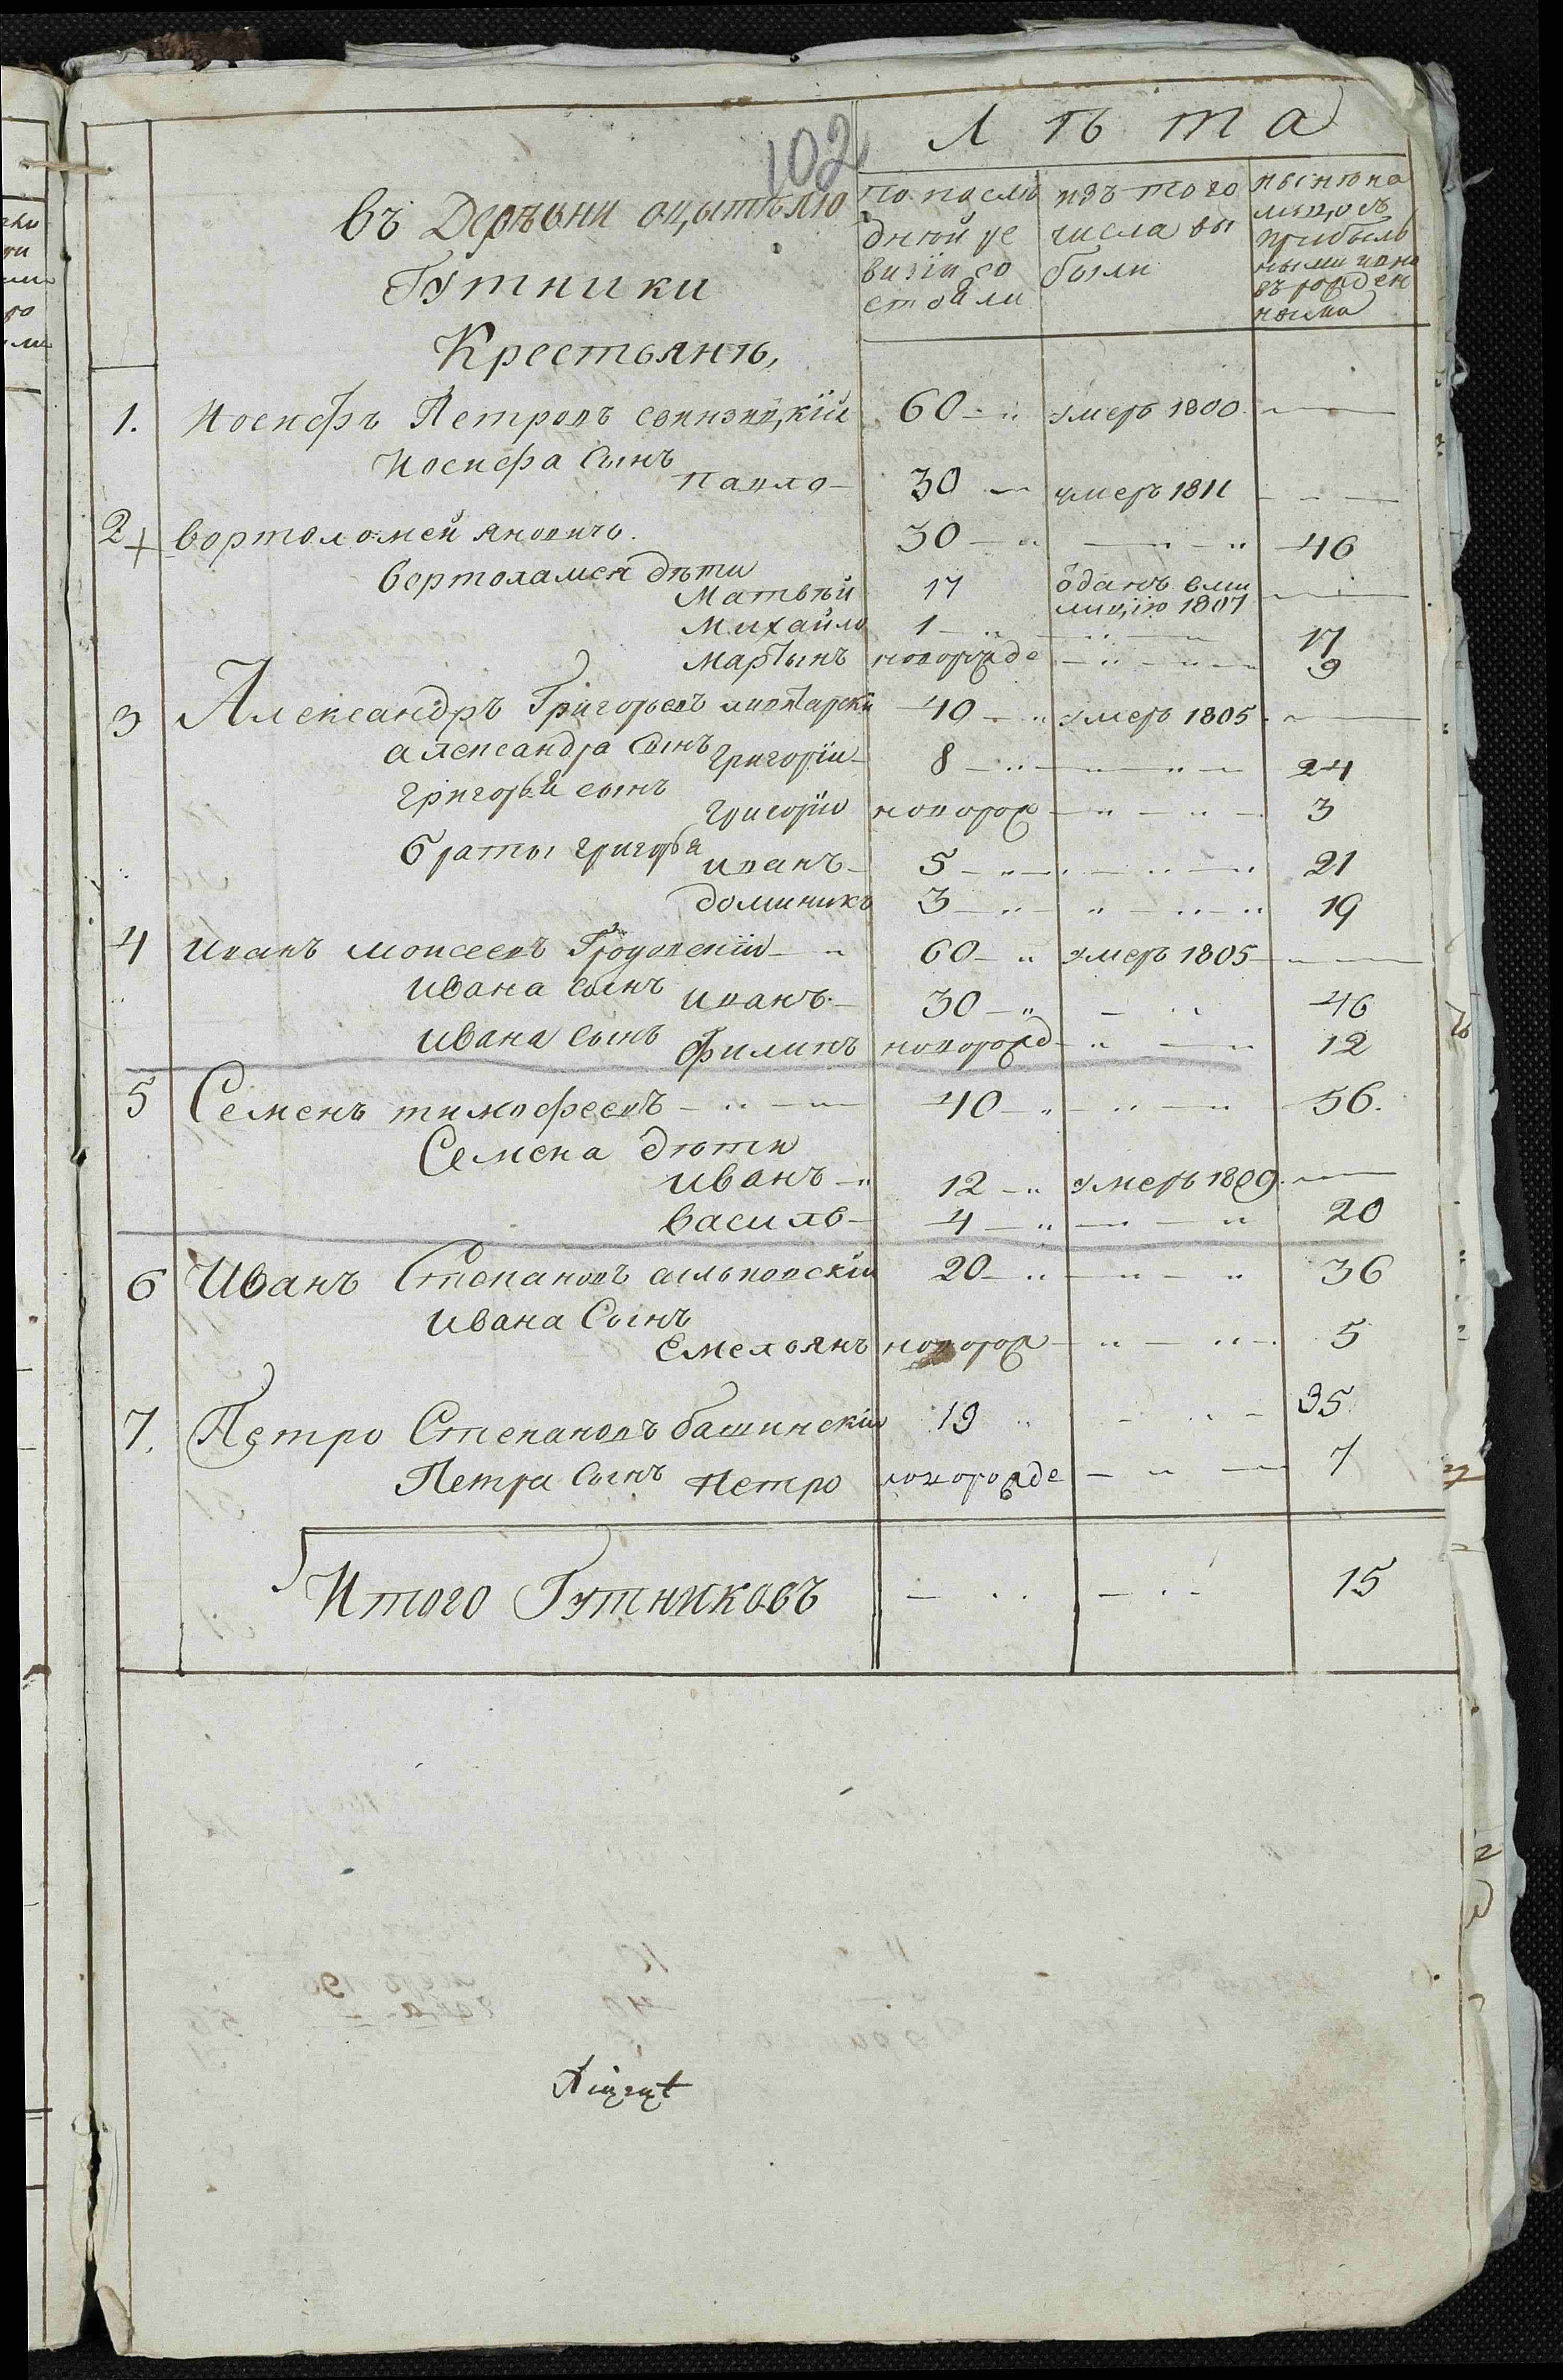 102
Лѣта
въ Деревни
Гутники
Крестьянъ,
По послѣ
дней ре
визіи со
стояли
изъ того
числа вы
были
нынѣ на
лицо съ
прибылы
ными и но
въ рожден
ными
1. Иосифъ Петровъ 60 умеръ 1800
Иосифа Сынъ
Павло 30 умеръ 1811
2 + вортоломей яновичъ. 30 46
вортоламея дѣти
Матвѣй 17 одатъ вми
лицію 1807
Михайло 1 17
Мартынъ новорожде 9
3 Александръ Григорьевъ 40 умеръ 1805
александра Сынъ Григорїи 8 24
григорья сынъ
григорїи новорож 3
браты григорья
иванъ 5 21
доминикъ 3 19
4 иванъ моисеевъ 60 умеръ 1805
ивана сынъ иванъ 30 46
ивана сынъ Филипъ новорожд 12
5 Семенъ тимофеевъ 40 56.
Семена дѣти
иванъ 12 умеръ 1809
василь 4 20
6 Иванъ Степановъ 20 36
ивана Сынъ
Емельянъ новорож 5
7. Петро Степановъ башинскїи 19 35
Петра Сынъ Петро новорожде 7
Итого Гутниковъ 15